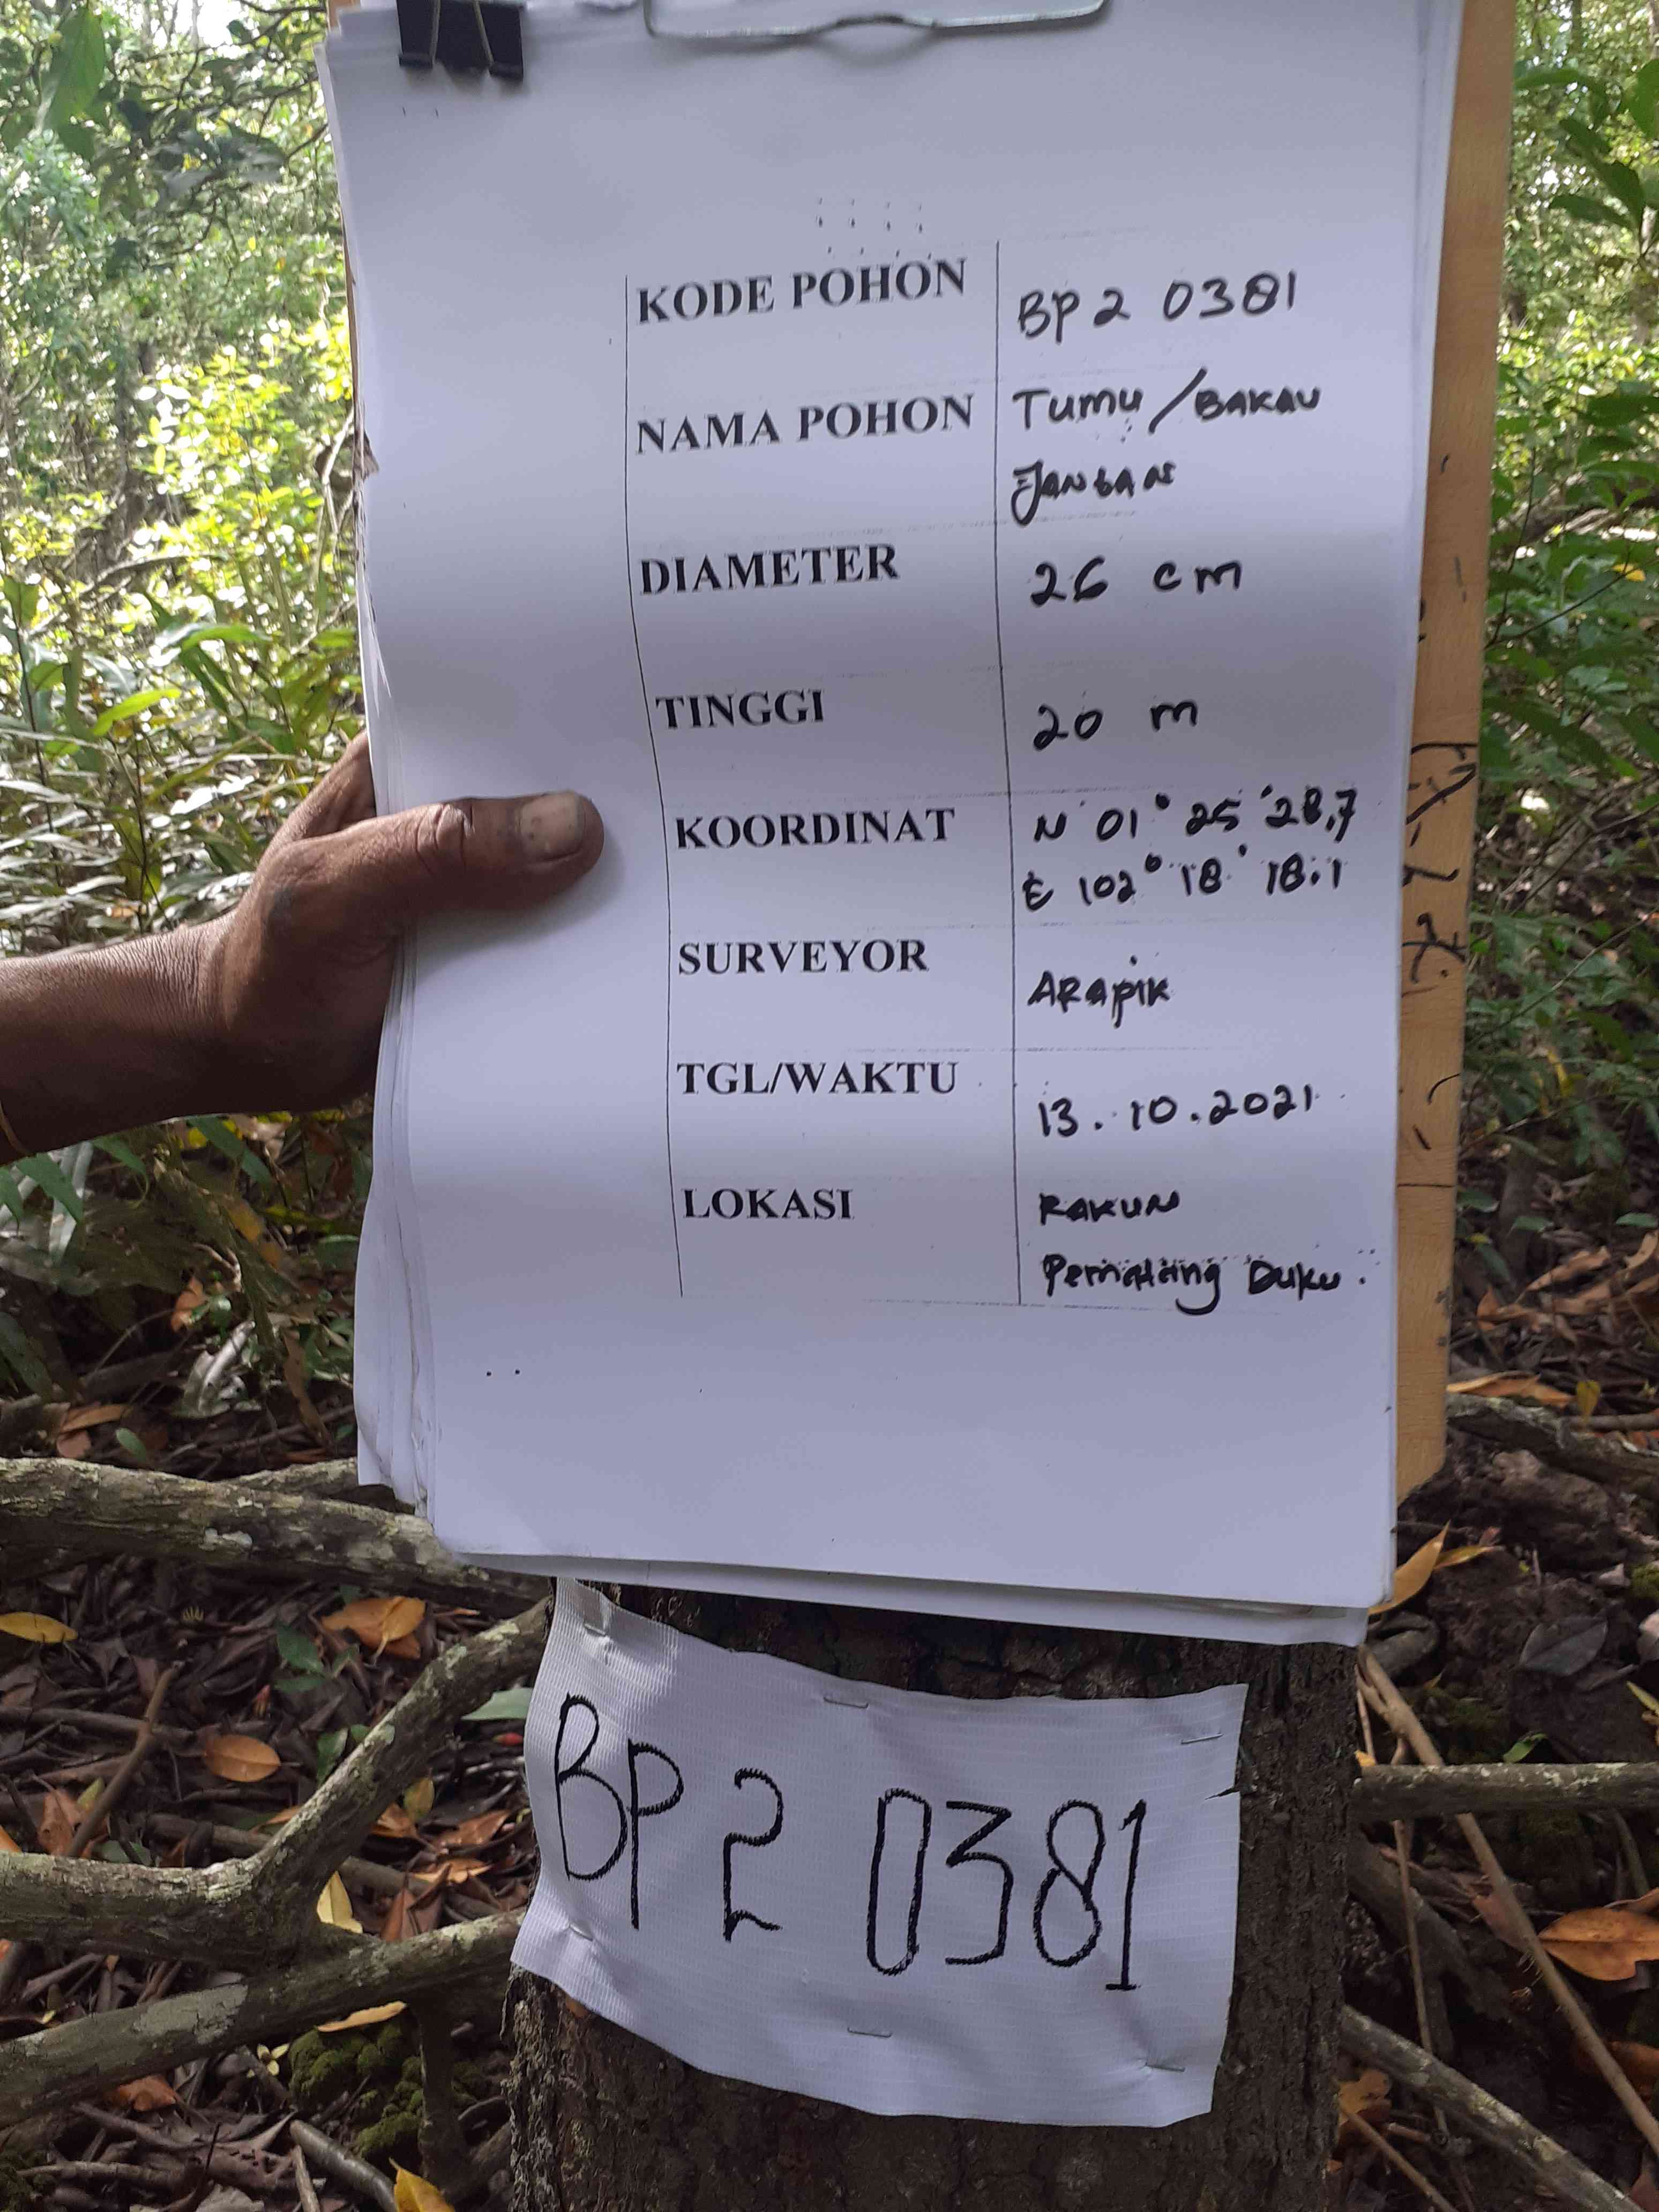 KODE POHON BP2 0381
NAMA POHON Tumu / BAKAU
JANTAN
DIAMETER 26 cm
TINGGI 20 m
KOORDINAT N 01° 25 '28,7
E 102° 18' 18.1
SURVEYOR ARAPIK
TGL/WAKTU 13.10.2021
LOKASI RAKUN
Pematang Duku.
BP2 0381